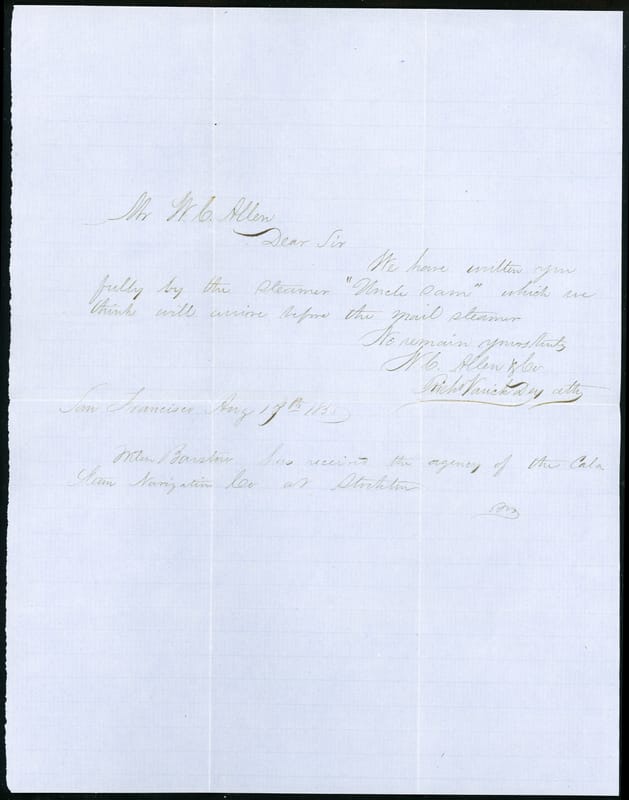 Mr W. C. Allen
Dear Sir
We have written you
fully by the steamer "Uncle Sam" which we
think will arrive before the mail steamer
We remain yours truly
W. C. Allen & Co
Varick Dey atty
San Francisco Aug 17th
Barstow has received the agency of the Cala
Steam Navigation Co at Stockton